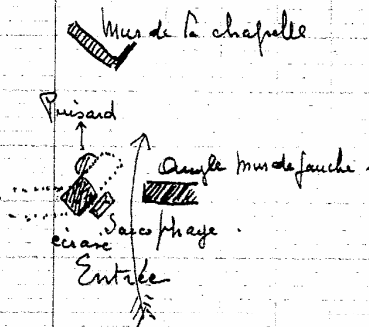 Mur de la chapelle
Puisard
Angle mur de gauche.
Sarcophage.
écrasé
Entrée